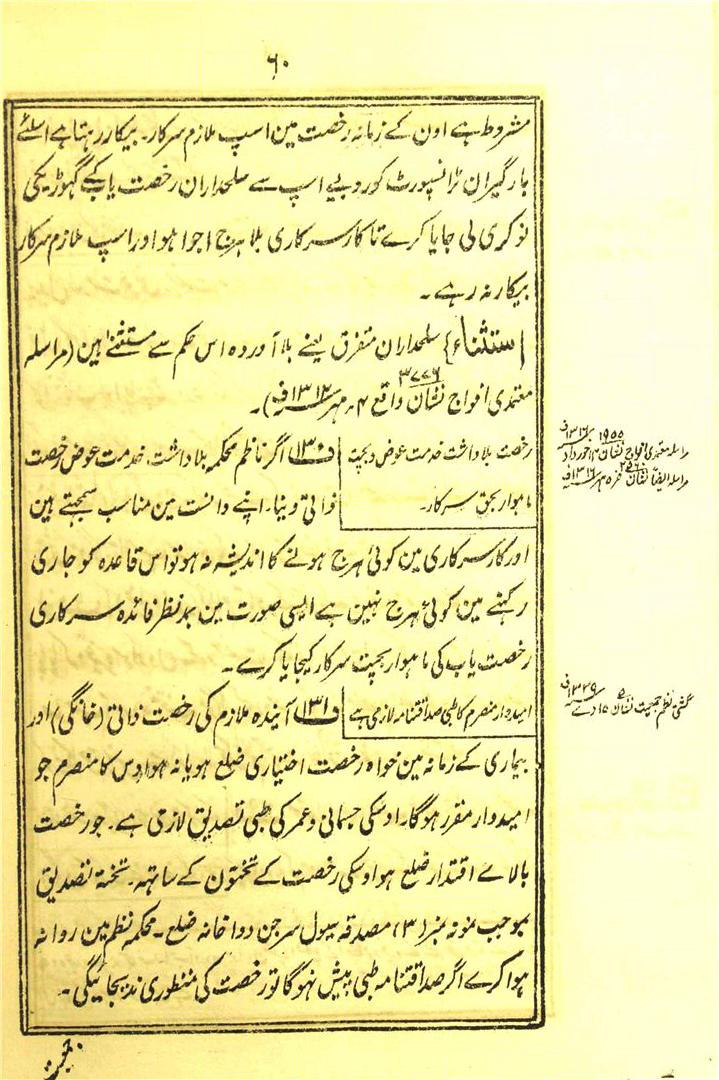 ۶۰
مشروط ہے اون کے زمانہ رخصت مین اسپ ملازم سرکار۔ بیکار رہتا ہے اسلئے
بارگیران ٹرانسپورٹ کو روپیے اسپ سے سلحداران رخصت یاب کے گھوڑیکی
نوکری لی جایا کرے تا کار سرکاری بلا ہرج اجرا ہو اور اسپ ملازم سرکار
بیکار نہ رہے ۔
(استثناء) سلحداران متفرق یعنے بلا آوردہ اس حکم سے مستثنےٰ ہین (مراسلہ
معتمدی افواج نشان ۳۷۷۶ واقع ۴۔ مہر ۱۳۱۲ف)۔
رخصت بلا داشت خدمت عوض و بچت
ماہوار بحق سرکار۔
ف۱۳۰ اگر ناظم محکمہ بلا داشت خدمت عوض رخصت
ذاتی دینا۔ اپنے دانست مین مناسب سمجہتے ہین
اور کار سرکاری مین کوئی ہرج ہونے کا اندیشہ نہ ہو تو اس قاعدہ کو جاری
رکہنے مین کوئی ہرج نہین ہے ایسی صورت مین بمد نظر فائدہ سرکاری
رخصت یاب کی ماہوار بچت سرکار کیجایا کرے ۔
امیدوار منصرم کا طبی صداقتنامہ لازمی ہے
ف۱۳۱ آیندہ ملازم کی رخصت ذاتی (خانگی) اور
بیماری کے زمانہ مین خواہ رخصت اختیاری ضلع ہو یا نہ ہو اوس کا منصرم جو
امیدوار مقرر ہوگا۔ اوسکی جسمانی و عمر کی طبی تصدیق لازمی ہے۔ جو رخصت
بالاے اقتدار ضلع ہو اوسکی رخصت کے تختون کے ساتہہ۔ تختہ تصدیق
بموجب نمونہ نمبر (۳) مصدقہ سیول سرجن دواخانہ ضلع۔ محکمہ نظم مین روانہ
ہوا کرے اگر صداقتنامہ طبی پیش نہوگا تو رخصت کی منظوری ندیجائیگی۔
مراسلہ معتمدی افواج نشان ۱۹۵۵
مراسلہ ایضاً نشان
گشتی نظم جمعیت نشان ۵ ۱۷ دے ۱۳۲۹ف